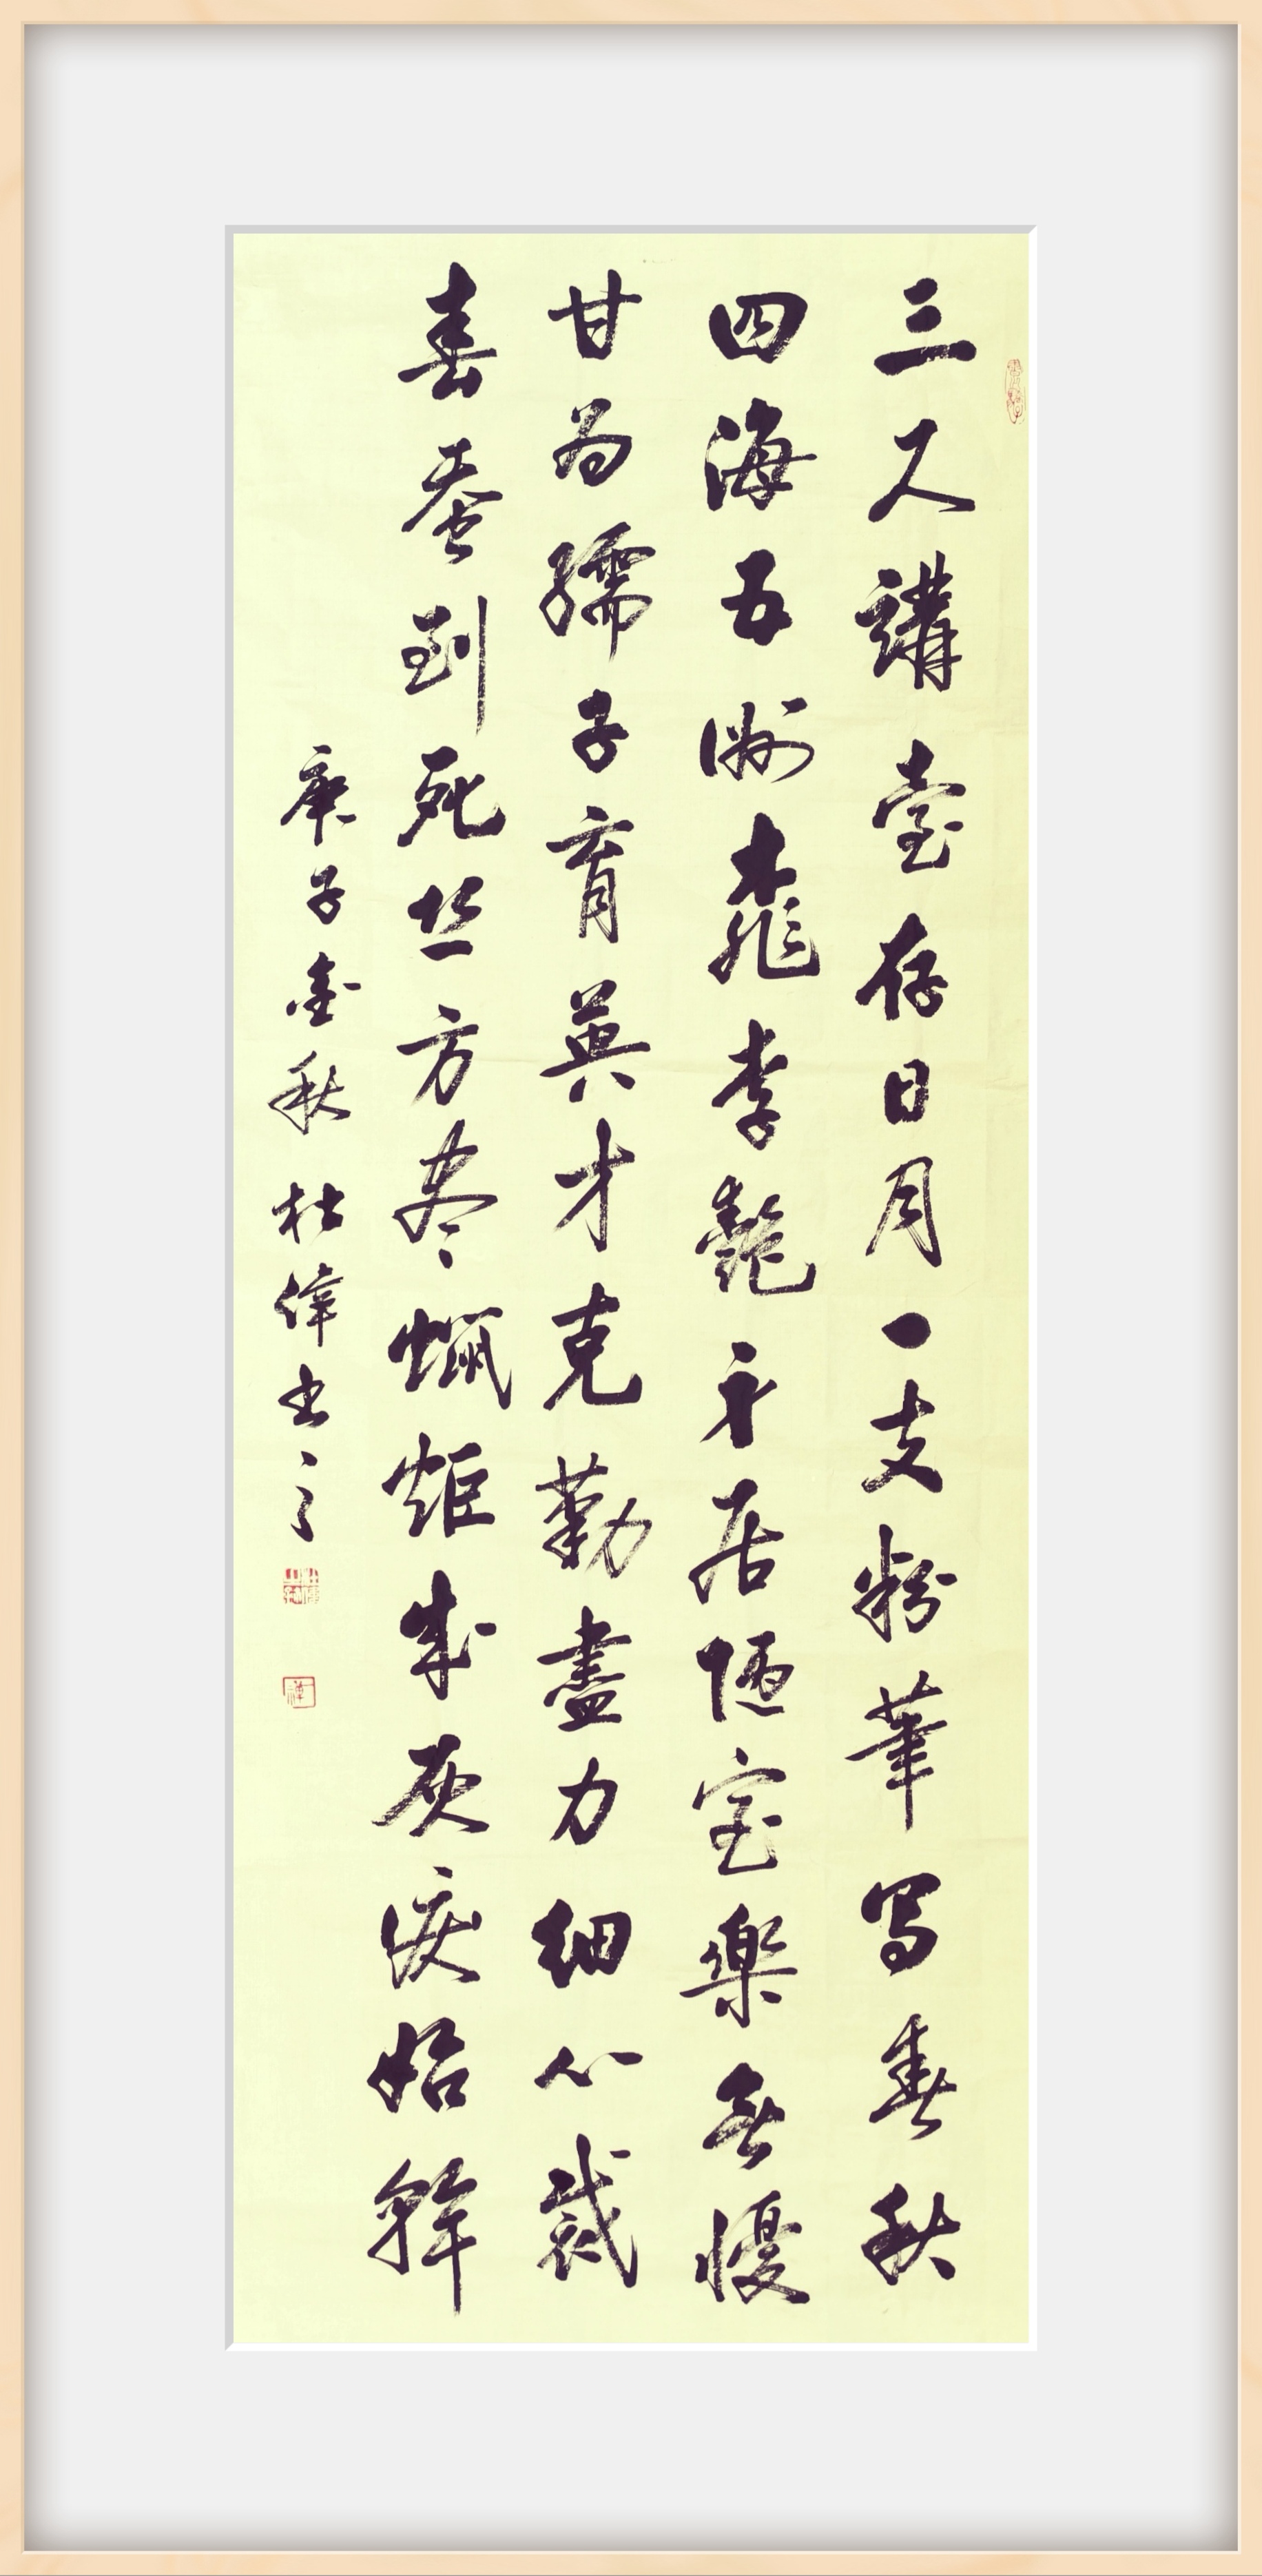 三尺講臺存日月一支粉筆写春秋
四海五洲桃李艷身居陋室樂無懮
甘为孺子育英才克勤盡力细心裁
春蚕到死丝方尽蠟炬成灰淚始幹
庚子金秋 杜偉书之